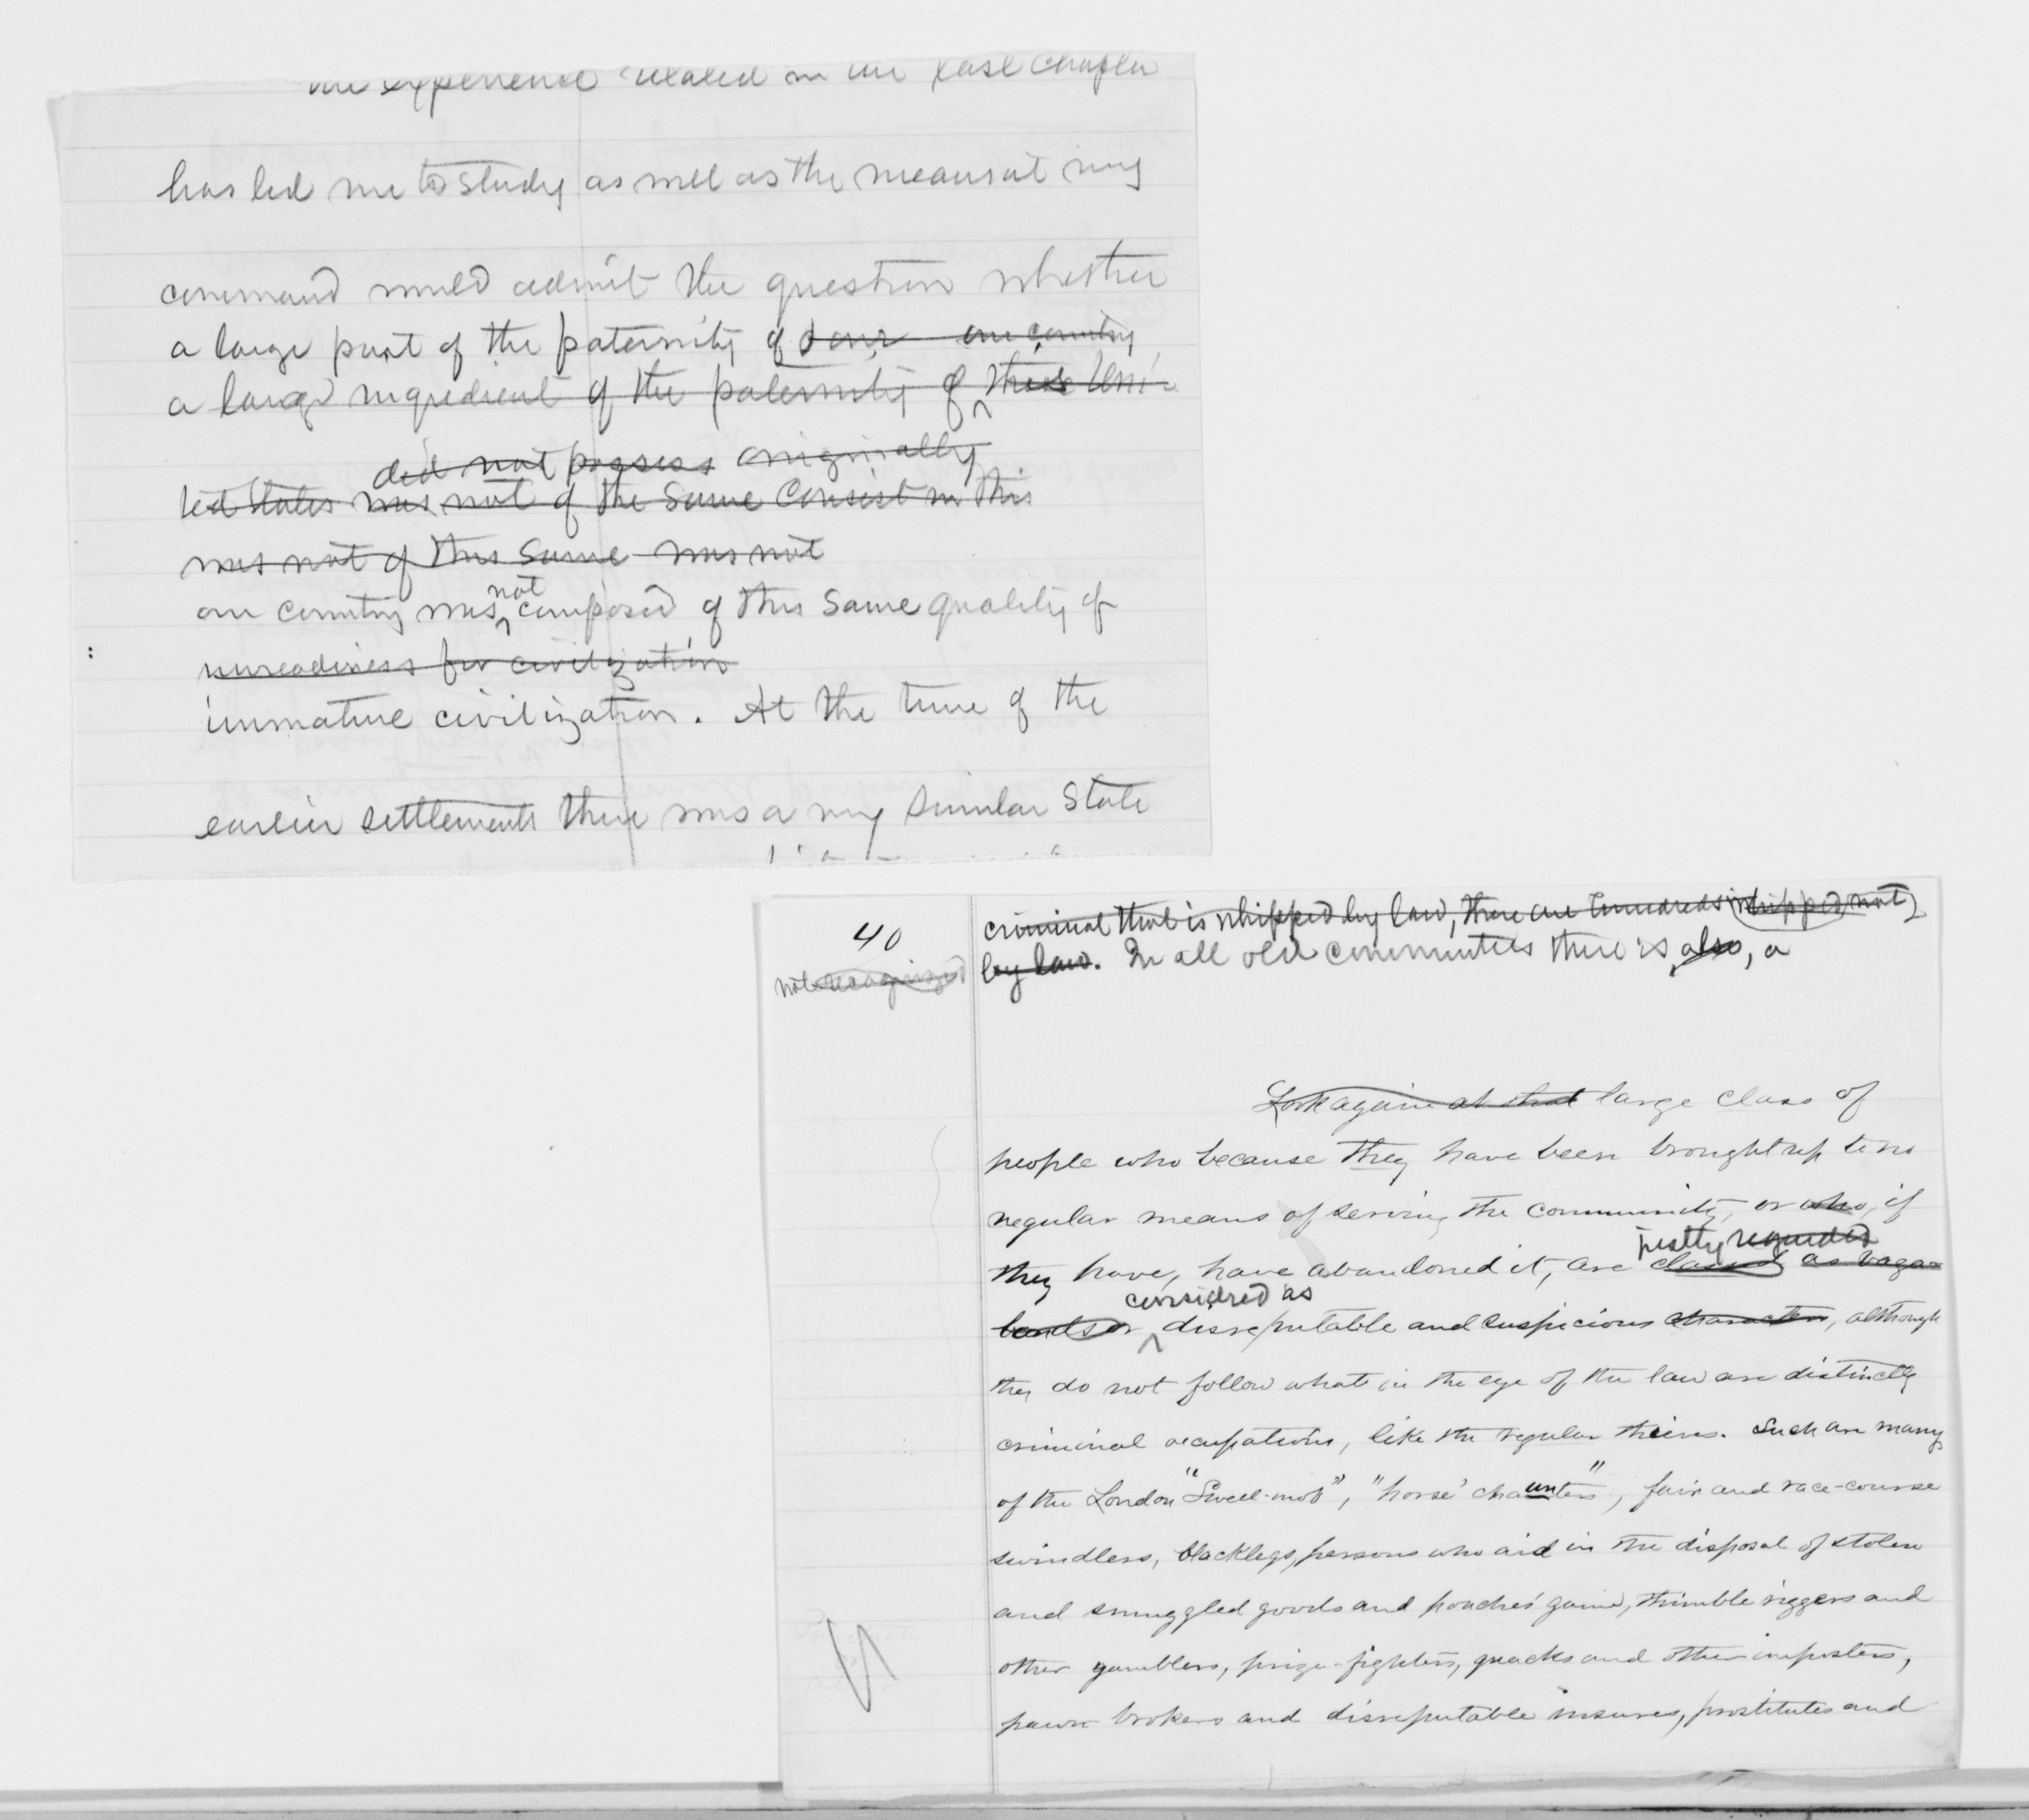 the experience related in the last chapter
has led me to study as well as the means at my
command would admit the question whether
a large part of the paternity of our our country
a large ingredient of the paternity of these Uni-
did not possess originally
ted States was not of the same consist in this
was not of this same was not
our country was not composed of this same quality of
unreadiness for civilization
immature civilization. At the time of the
earlier settlements there was a very similar state
40
not recognized
criminal that is whipped by law, there are hundreds whipped not
by law. In all old communities there is, also, a
Look again at that large class of
people who because they have been brought up to no
regular means of serving the community, or who, if
justly regarded
they have, have abandoned it, are classed as vaga-
considered as
bonds or disreputable and suspicious characters, although
they do not follow what in the eye of the law are distinctly
criminal occupations, like the regular thieves. Such are many
of the London "Swell-mob", "horse' chaunters", fair and race-course
swindlers, blacklegs, persons who aid in the disposal of stolen
and smuggled goods and poached game, thimble riggers and
other gamblers, prize-fighters, quacks and other imposters,
pawn brokers and disreputable usurers, prostitutes and